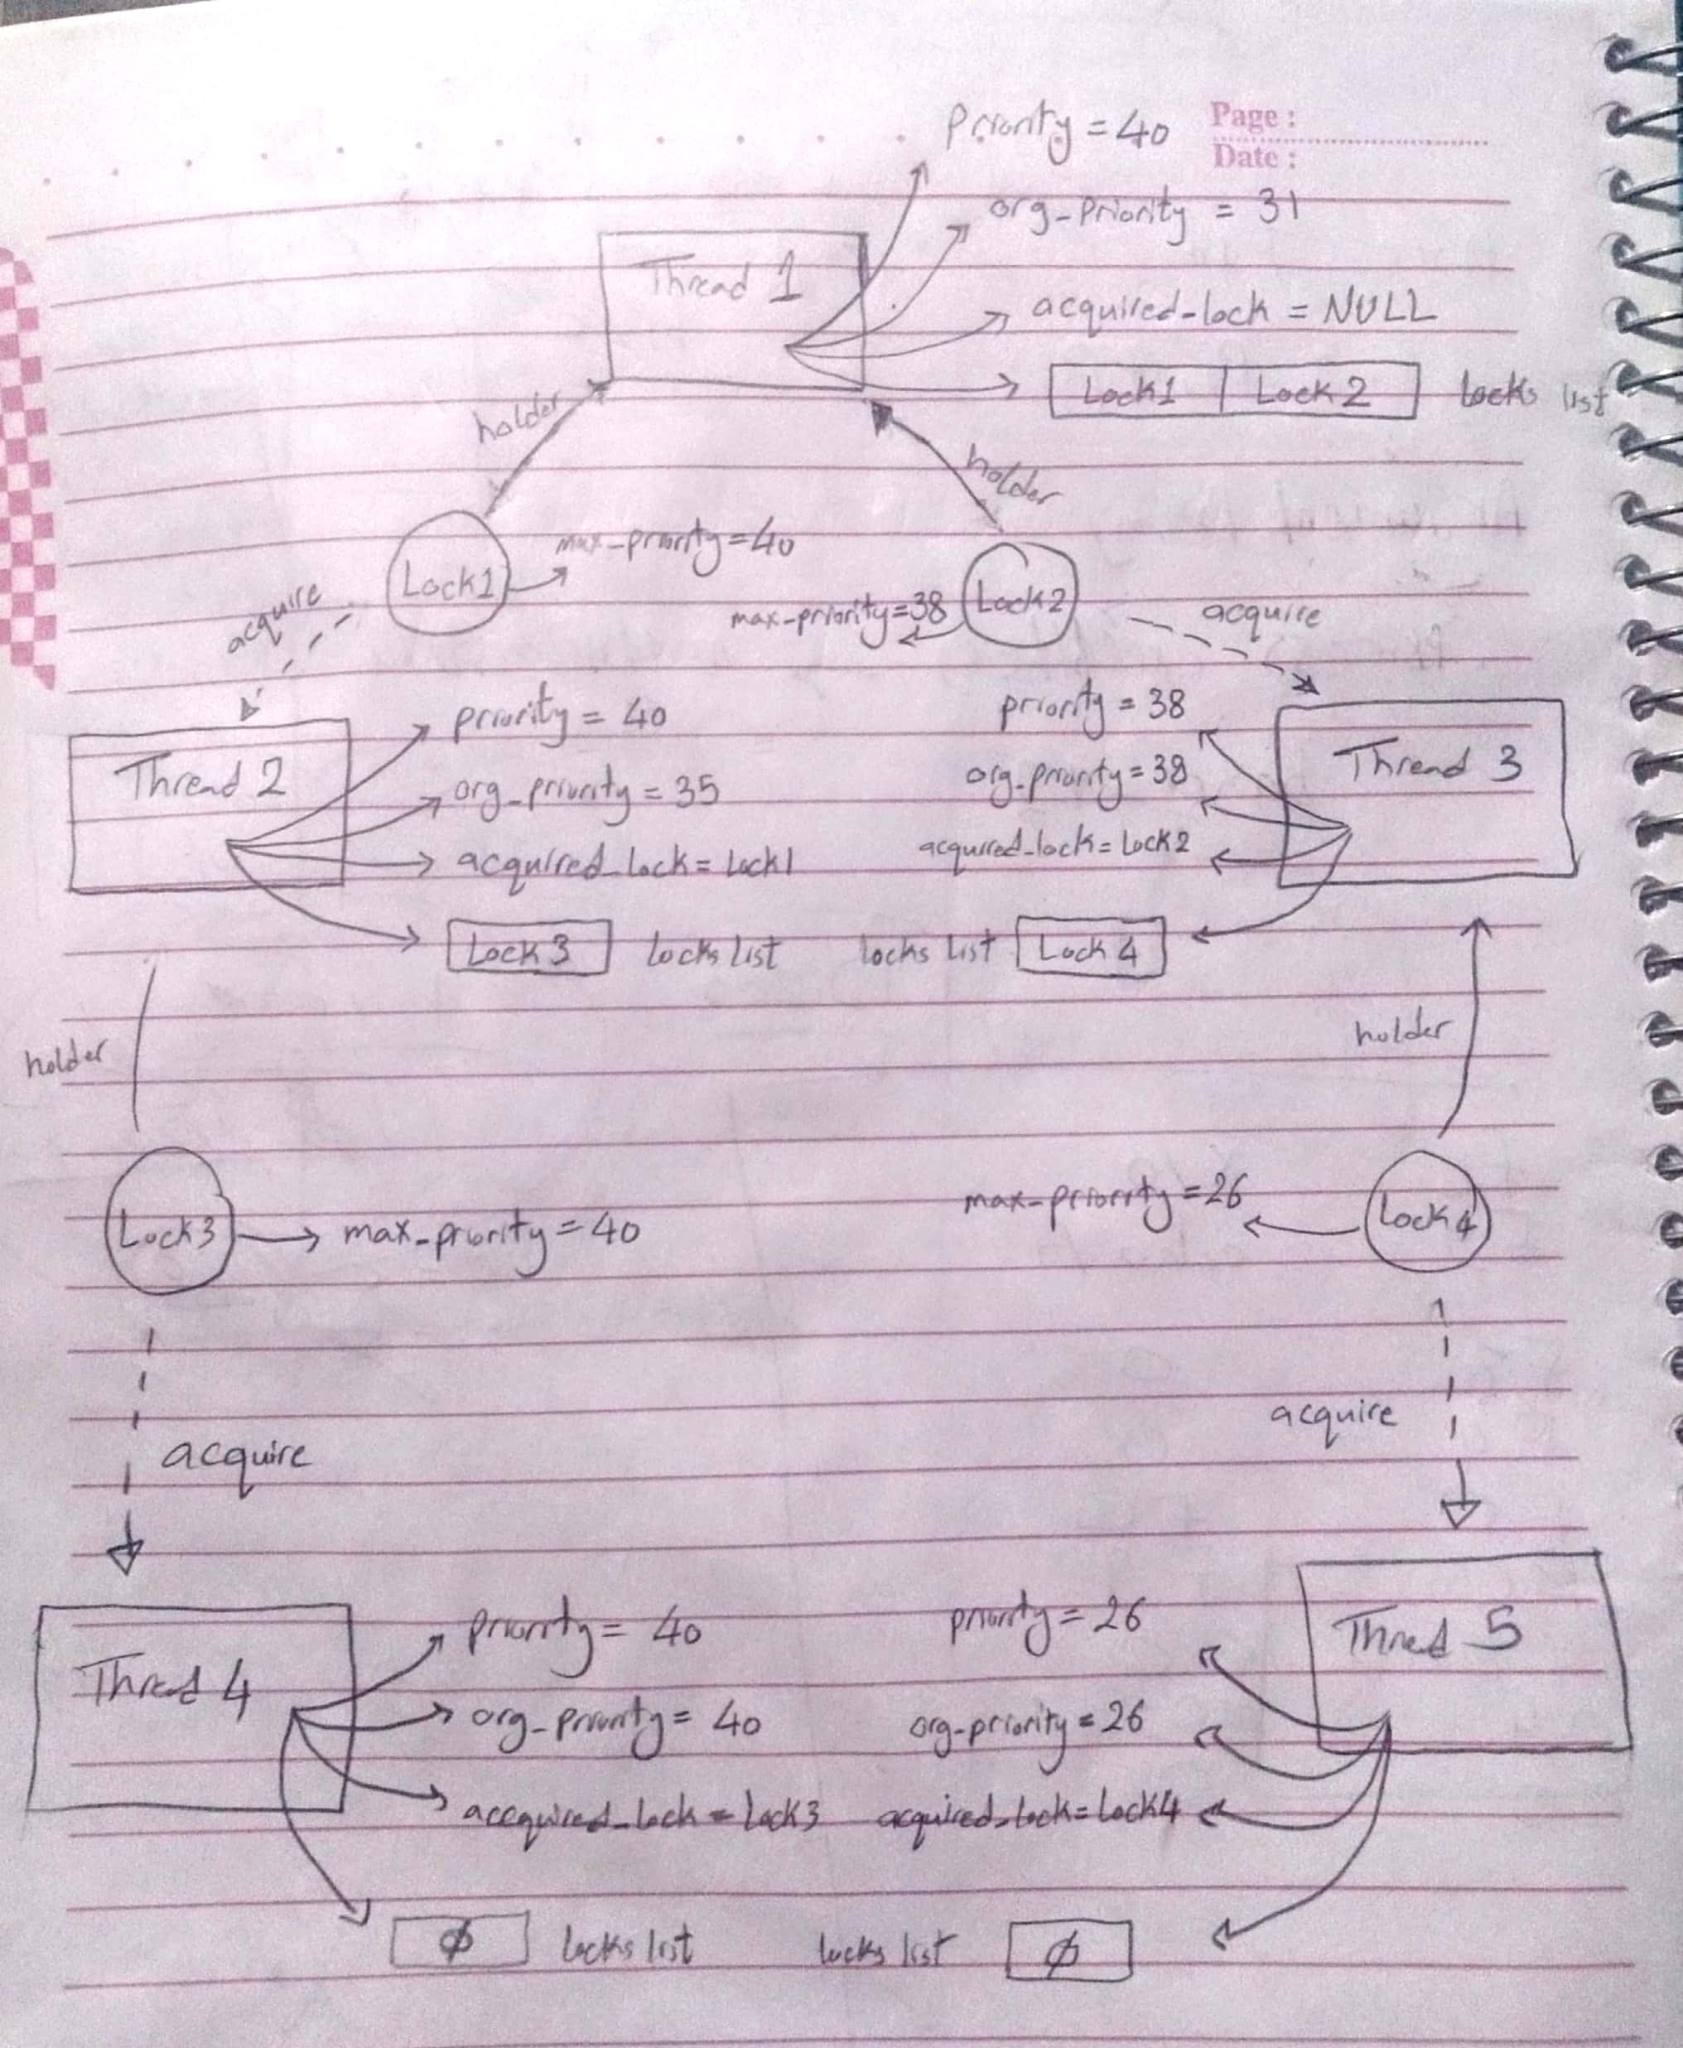 Page :
Date :
Priority = 40
org_Priority = 31
Thread 1
acquired_lock = NULL
Lock1 Lock2 locks list
holder
holder
Lock1
max_priority=40
Lock2
max_priority=38
acquire
acquire
Thread 2
priority = 40
org_priority = 35
acquired_lock = Lock1
Lock3 locks list
priority = 38
org_priority=38
acquired_lock=Lock2
locks list Lock4
Thread 3
holder
holder
Lock3
max_priority=40
max_priority=26
Lock4
acquire
acquire
Thread 4
priority = 40
org_priority = 40
accquired_lock = Lock3
ϕ locks list
priority = 26
org_priority = 26
acquired_lock=Lock4
locks list ϕ
Thread 5